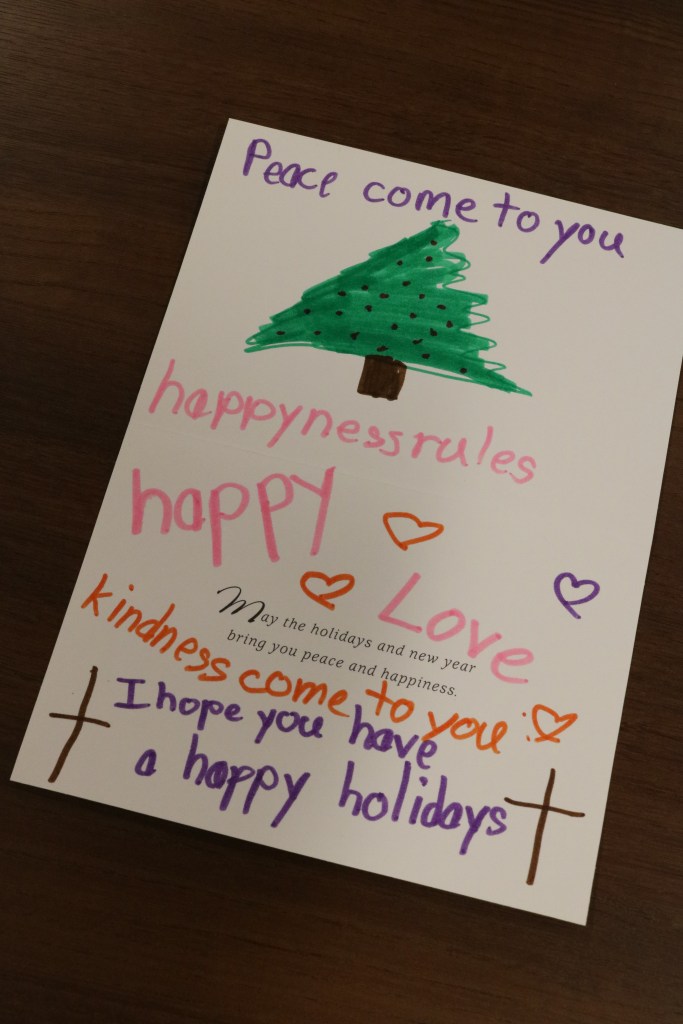 Peace come to you
happyness rules
happy
Love
May the holidays and new year
bring you peace and happiness.
kindness come to you
I hope you have
a happy holidays